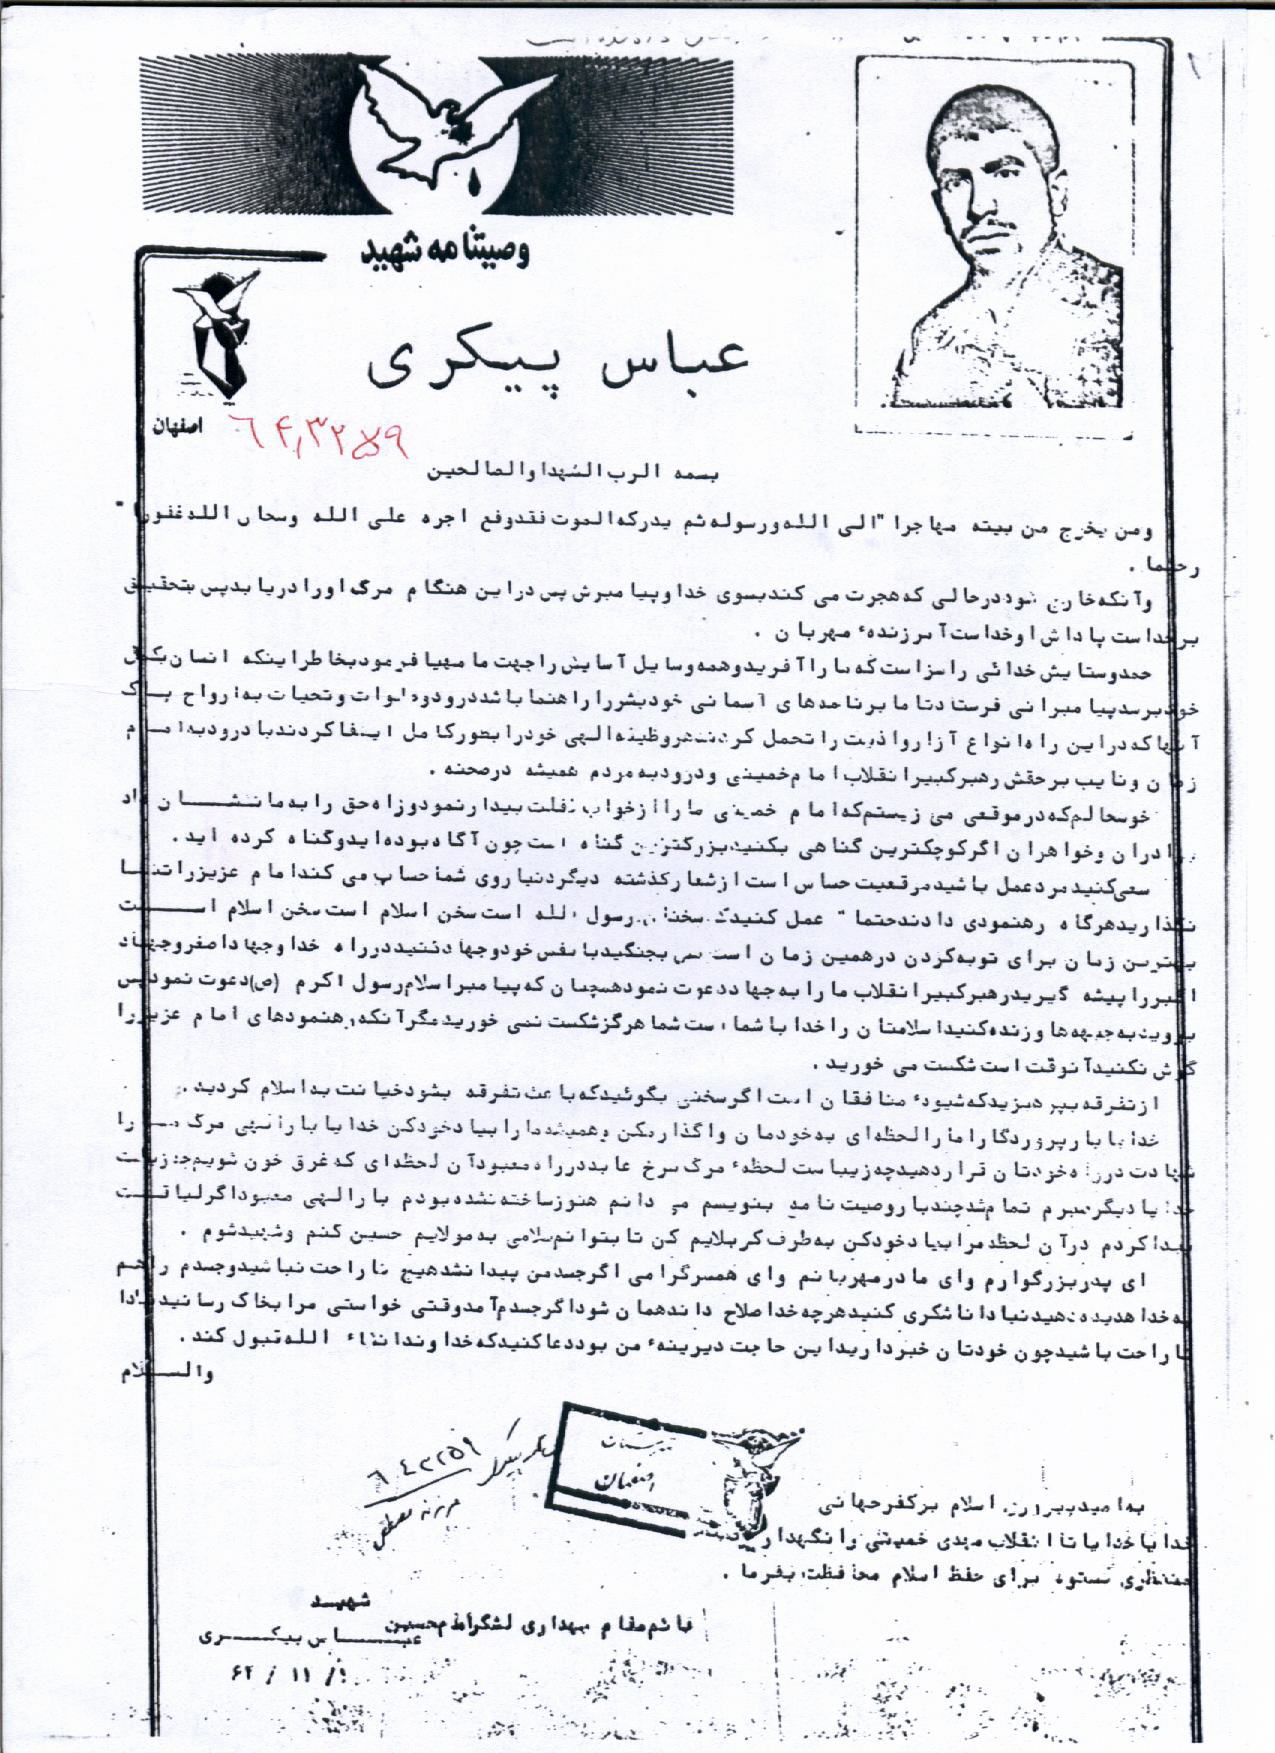 وصیتنامه شهید
عباس پیکری
اصفهان
۶۴۳۲۵۹
بسمه الرب الشهدا والصالحین
ومن یخرج من بیته مهاجرا" الی الله ورسوله ثم یدرکه الموت فقدوقع اجره علی الله وکان الله غفورا"
رحیما .
وآنکه خارج شوددرحالی که هجرت می کندبسوی خداوپیامبرش پس دراین هنگام مرگ اورادریابدپس بتحقیق
برخداست پاداش اوخداست آمرزنده مهربان .
حمدوستایش خدائی راسزاست که ماراآفریدوهمه وسایل آسایش راجهت مامهیافرمودبخاطراینکه انسان بکمال
خودبرسدپیامبرانی فرستادتامابرنامه‌های آسمانی خودبشرراراهنماباشددرودوصلوات وتحیات به ارواح پاک
آنهاکه دراین راه انواع آزارواذیت راتحمل کردندهروظیفه الهی خودرابطورکامل ایفاکردندبادرودبه امام
زمان ونایب برحقش رهبرکبیرانقلاب امام خمینی ودرودبه مردم همیشه درصحنه .
خوشحالم که درموقعی می زیستم که امام خمینی ماراازخواب غفلت بیدارنمودوراه حق رابه مانشان داد
برادران وخواهران اگرکوچکترین گناهی بکنیدبزرگترین گناه است چون آگاه بوده ایدوگناه کرده اید .
سعی کنیدمردعمل باشیدموقعیت حساس است ازشعارگذشته دیگردنیاروی شماحساب می کندامام عزیزراتنها
نگذاریدهرگاه رهنمودی دادندحتما" عمل کنیدکه سخنان رسول الله است سخن اسلام است سخن اسلام است
بهترین زمان برای توبه کردن درهمین زمان است پس بجنگیدبانفس خودوجهادکنیددرراه خداوجهاداصغروجهاد
اکبرراپیشه گیریدرهبرکبیرانقلاب مارابه جهاددعوت نمودهمچنان که پیامبراسلام رسول اکرم (ص)دعوت نمودپس
برویدبه جبهه‌هاوزنده کنیداسلامتان راخداباشماست شماهرگزشکست نمی خوریدمگرآنکه رهنمودهای امام عزیزرا
گوش نکنیدآنوقت است شکست می خورید .
ازتفرقه بپرهیزیدکه شیوه منافقان است اگرسخنی بگوئیدکه باعث تفرقه بشودخیانت به اسلام کردید .
خدایابارپروردگارامارالحظه‌ای به خودمان واگذارمکن وهمیشه مارابیادخودکن خدایابارالهی مرگ مارا
شهادت درراه خودتان قراردهیدچه زیباست لحظه مرگ سرخ عابددرراه معبودآن لحظه‌ای که غرق خون شویم چه زیباست
خدایادیگرصبرم تمام شدچندباروصیت نامه بنویسم می دانم هنوزساخته نشده بودم بارالهی معبودااگرلیاقت
پیداکردم درآن لحظه مرابیادخودکن به طرف کربلایم کن تابتوانم سلامی به مولایم حسین کنم وشهیدشوم .
ای پدربزرگوارم وای مادرمهربانم وای همسرگرامی اگرجسدمن پیدانشدهیچ ناراحت نباشیدوجسدم راهم
به خداهدیه دهیدنباداناشکری کنیدهرچه خداصلاح داندهمان شوداگرجسدم آمدوقتی خواستی مرابخاک رسانیدمبادا
ناراحت باشیدچون خودتان خبرداریداین حاجت دیرینه من بوددعاکنیدکه خداوندانشاء الله قبول کند .
والسلام
۶۴۳۲۵۹
اصفهان
به امیدپیروزی اسلام برکفرجهانی
خدایاخدایاتاانقلاب مهدی خمینی رانگهدار
منتظری ستوده برای حفظ اسلام محافظت بفرما .
قائم مقام بهداری لشگرامام حسین
شهید
عباس پیکری